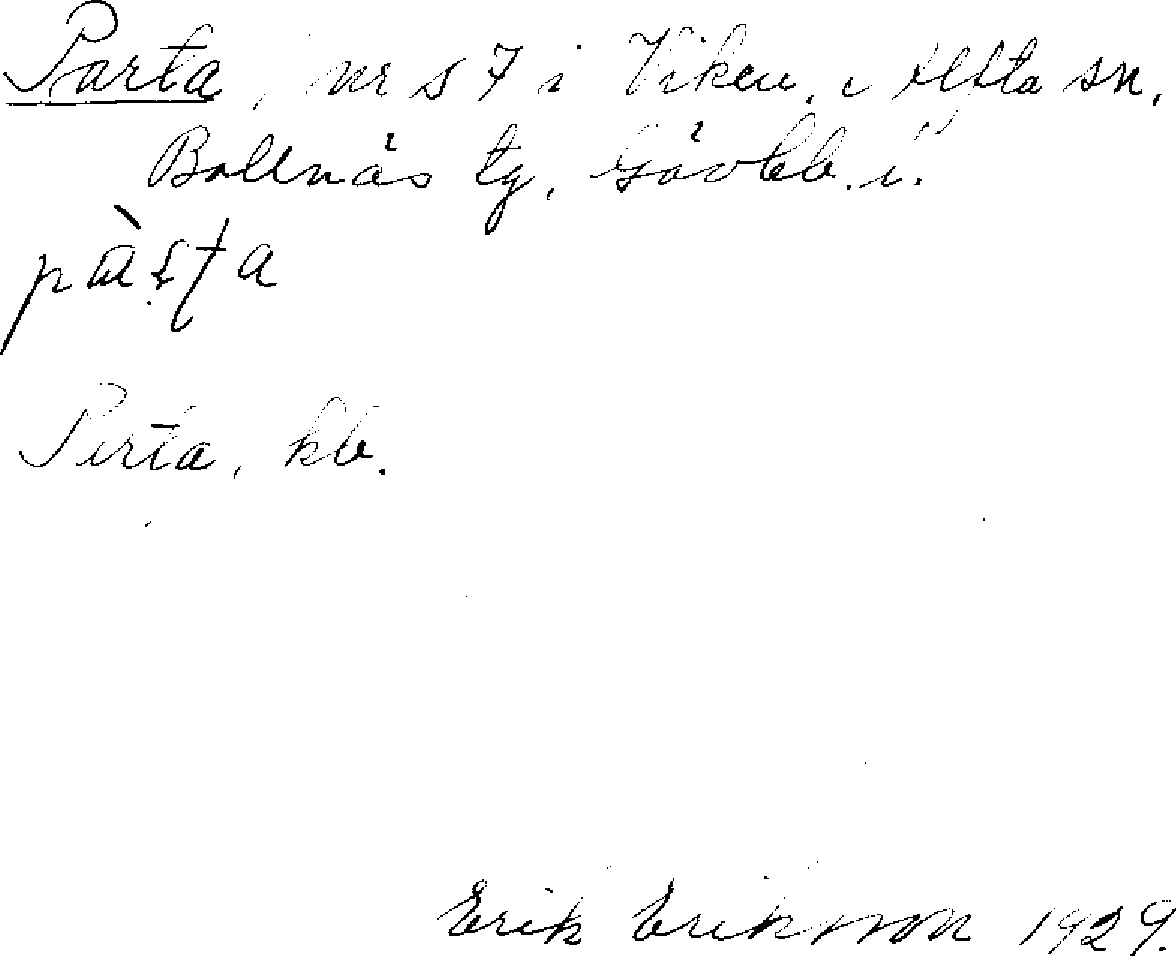 Parta, nr s 7 i Viken, i Alfta sn,
Bollnäs tg, Gävleb. l.
pàṣṭa
Perta, kb.
Erik Eriksson 1929.